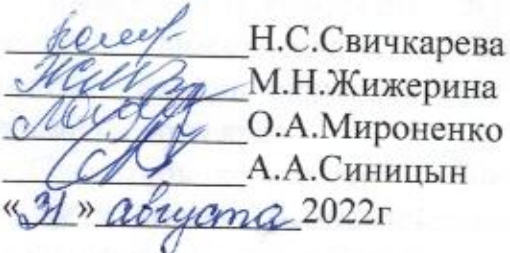 Н.С.Свичкарева
М.Н.Жижерина
О.А.Мироненко
А.А.Синицын
«31» августа 2022г